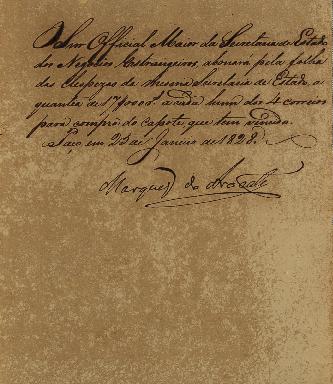 O Snr Official Maior da Secretaria de Estado
dos Negocios Estrangeiros, abonará pela folha
das despezas da mesma Secretaria de Estado, a
quantia de a cada hum dos 4 correios
para compra do capote, que tem vencido.
Paço em 23 de Janeiro de 1828.
Marquez do Aracaty